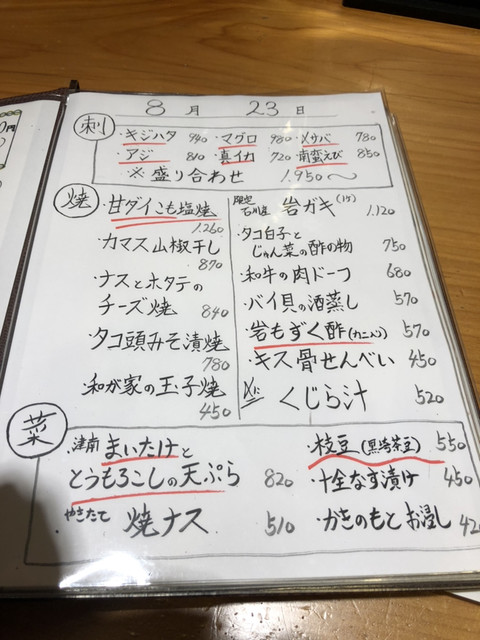 8月23日
刺
・キジハタ 940 ・マグロ 980 ・〆サバ 780
・アジ 810 ・真イカ 720 ・南蛮えび 850
・※盛り合わせ 1.950〜
焼
・甘ダイこも塩焼
1.260
・カマス山椒干し
870
・ナスとホタテの
チーズ焼 840
・タコ頭みそ漬焼
780
・和が家の玉子焼
450
限定
石川産 岩ガキ(1ケ) 1.120
・タコ白子と
じゅん菜の酢の物 750
・和牛の肉ドーフ 680
・バイ貝の酒蒸し 570
・岩もずく酢(カニ入り) 570
・キス骨せんべい 450
〆に くじら汁 520
菜
・津南まいたけと
とうもろこしの天ぷら 820
やきたて 焼ナス 510
・枝豆(黒埼茶豆) 550
・十全なす漬け 450
・かきのもとお浸し 420
円